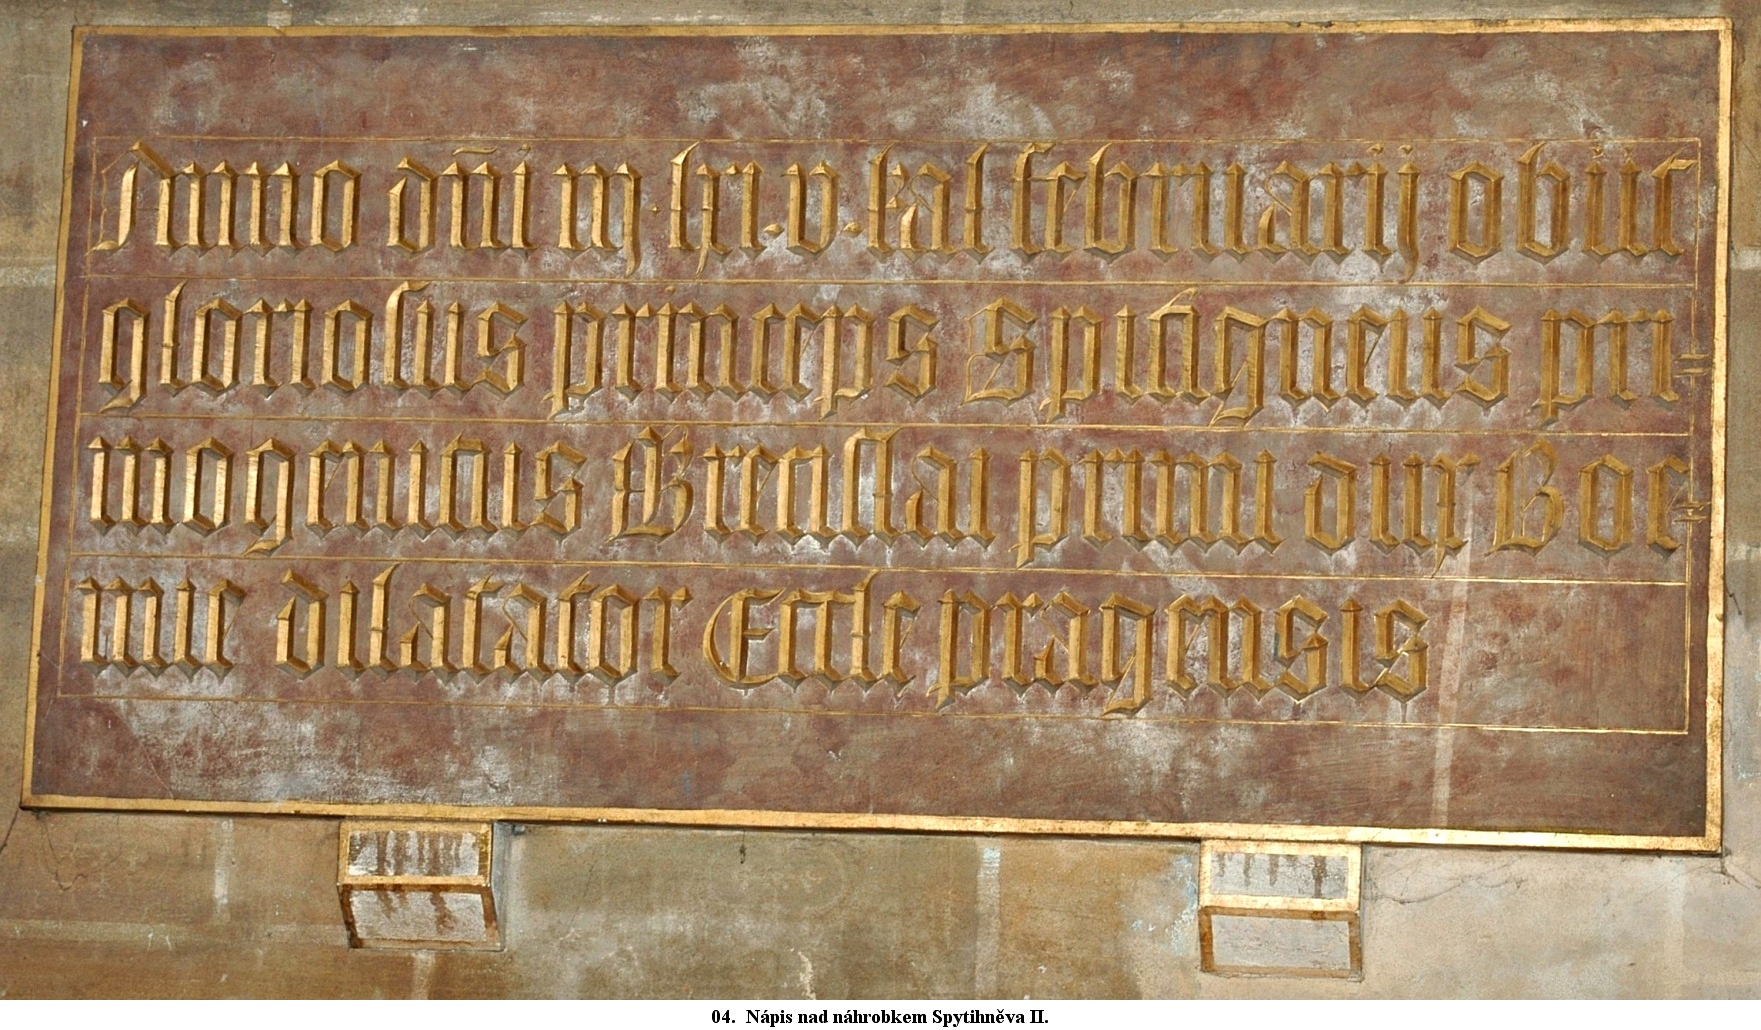 Anno dñi m·lxi·v·kal februarij obiit
gloriosus princeps Spitigneus pri=
mogenitus Bretislai primi dux Boe=
mie dilatator Eccle pragensis
04. Nápis nad náhrobkem Spytihněva II.